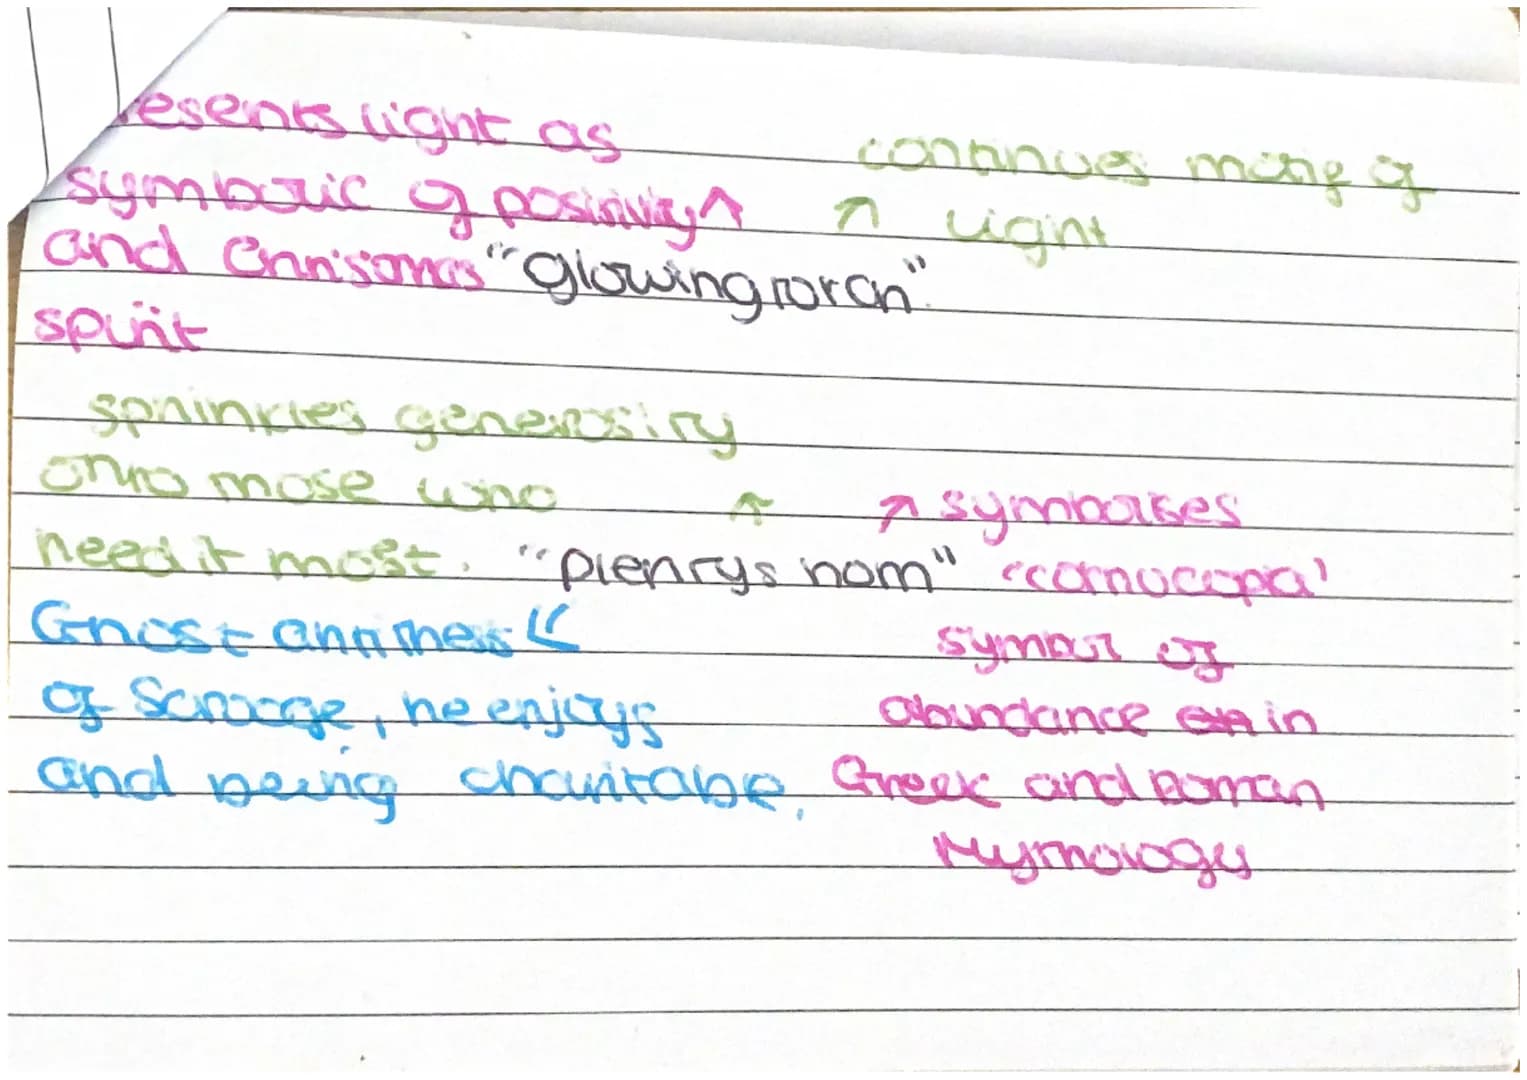 esents light as
symbolic of positivity ↑
and Christmas
spirit
continues motif of
↗ light
"glowing torch".
sprinkles generosity
onto those who
need it most.
↑ ↗ symbolises
"plenty's horn" 'cornucopa'
symbol of
abundance in
Greek and Roman
Mythology
Ghost antithesis ↙
of Scrooge, he enjoys
and being charitable.